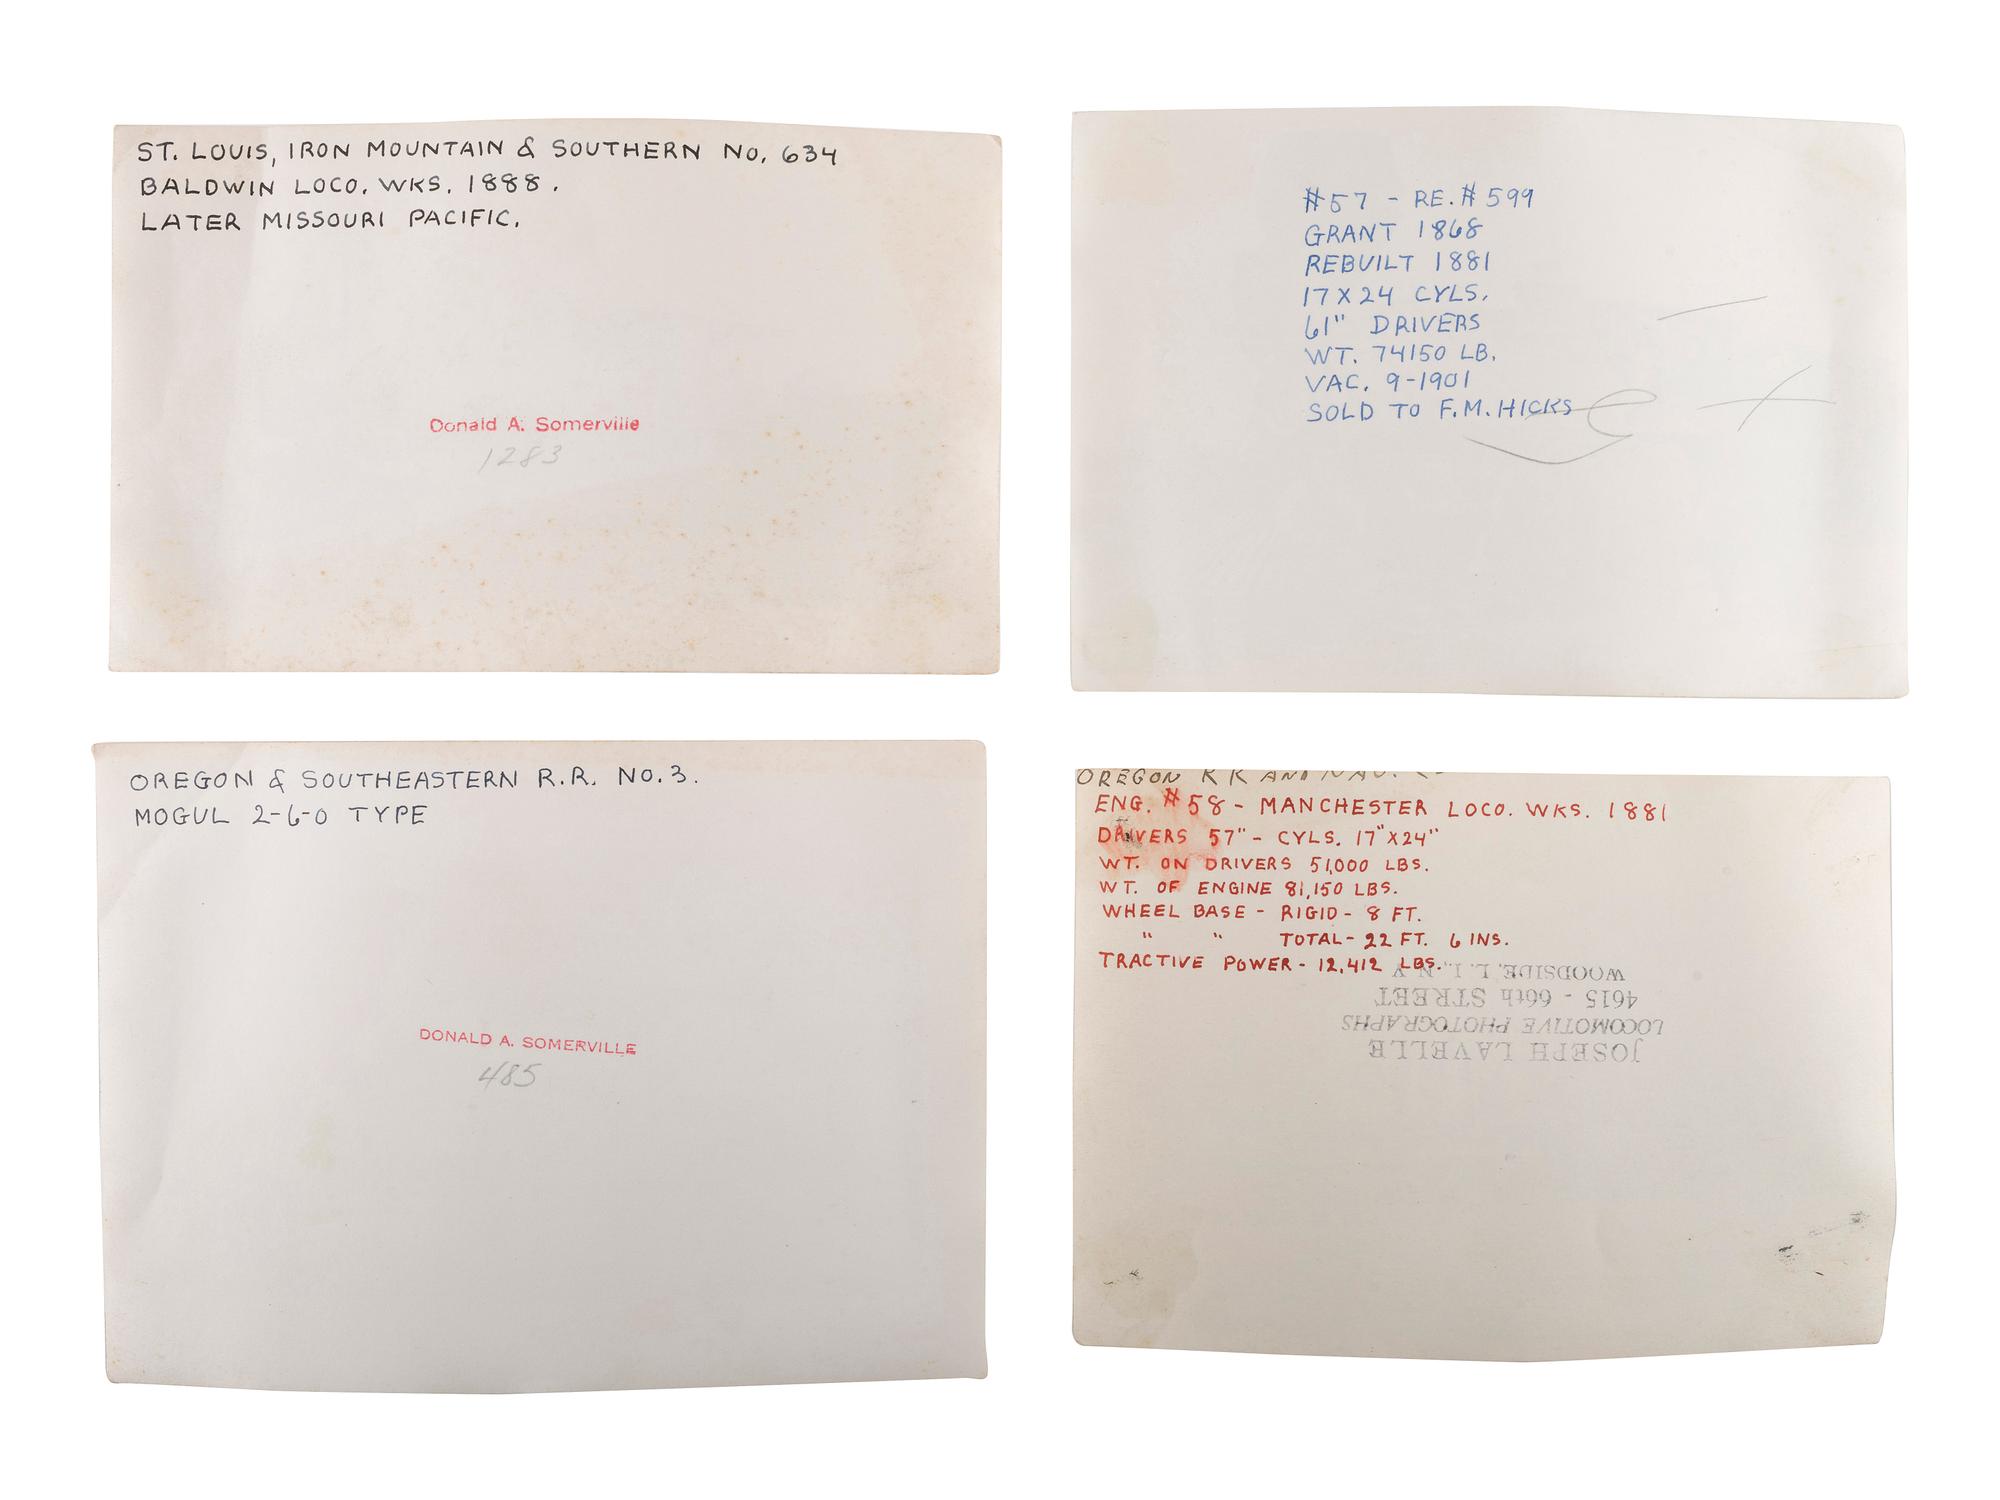 ST. LOUIS, IRON MOUNTAIN & SOUTHERN NO. 634
BALDWIN LOCO. WKS. 1888.
LATER MISSOURI PACIFIC.
Donald A. Somerville
1283
#57 - RE. #599
GRANT 1868
REBUILT 1881
17 X 24 CYLS.
61" DRIVERS
WT. 74150 LB.
VAC. 9-1901
SOLD TO F.M. HICKS
OREGON & SOUTHEASTERN R.R. NO. 3.
MOGUL 2-6-0 TYPE
DONALD A. SOMERVILLE
485
OREGON RR AND NAV.
ENG. #58 - MANCHESTER LOCO. WKS. 1881
DRIVERS 57" - CYLS. 17"X24"
WT. ON DRIVERS 51,000 LBS.
WT. OF ENGINE 81,150 LBS.
WHEEL BASE - RIGID - 8 FT.
" " TOTAL - 22 FT. 6 INS.
TRACTIVE POWER - 12,412 LBS.
JOSEPH LAVELLE
LOCOMOTIVE PHOTOGRAPHS
4615 - 66th STREET
WOODSIDE, L. I., N. Y.